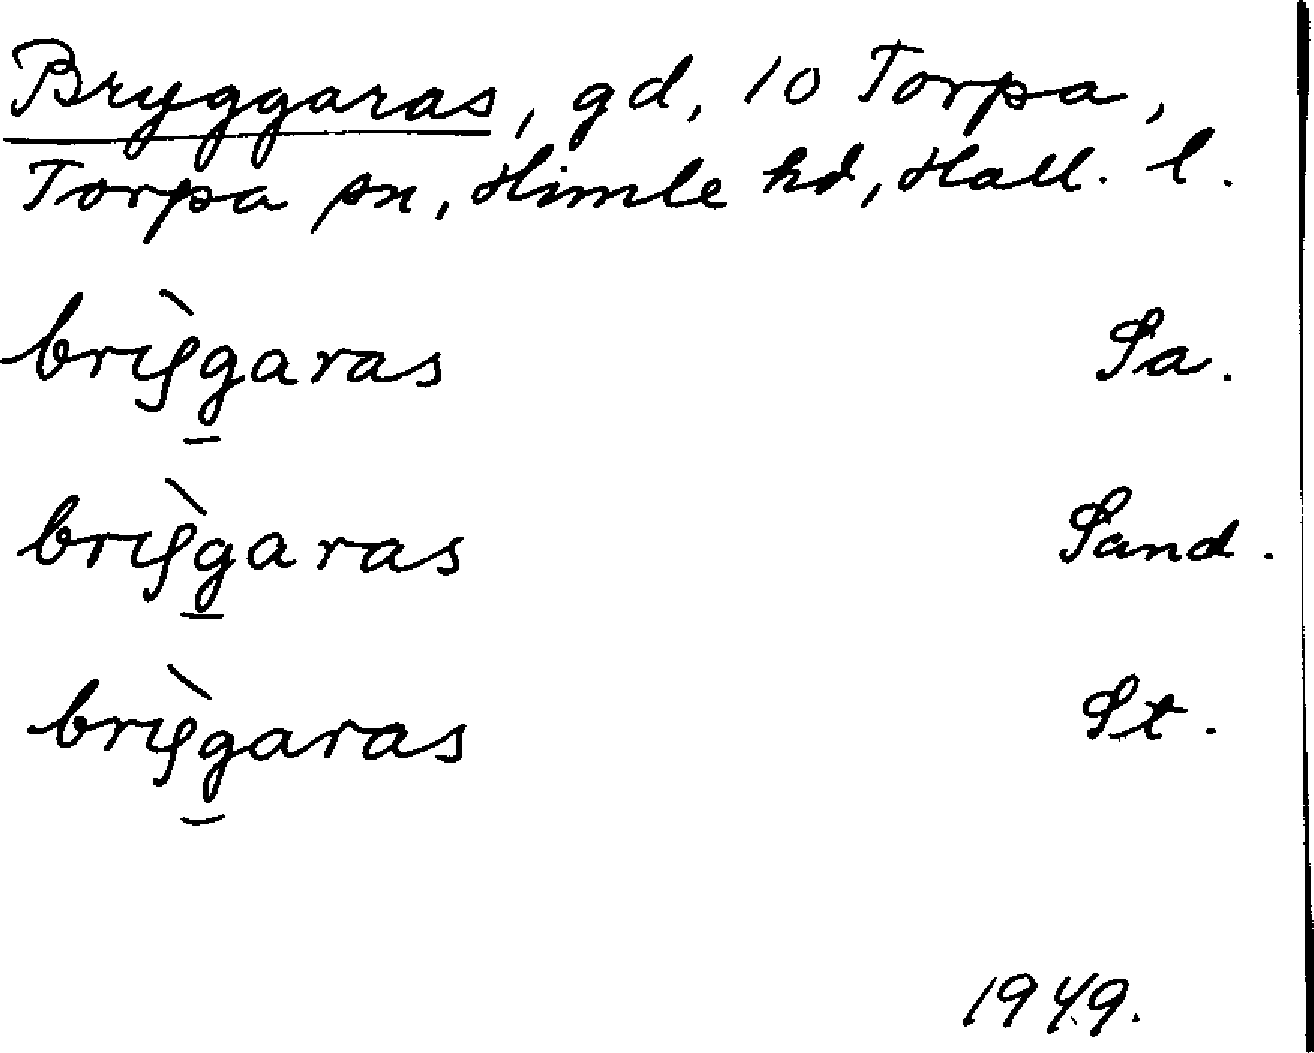 Bryggaras, gd, 10 Torpa,
Torpa sn, Himle hd, Hall. l.
brỳg̱aras Sa.
brỳg̱aras Sand.
brỳg̱aras St.
1949.